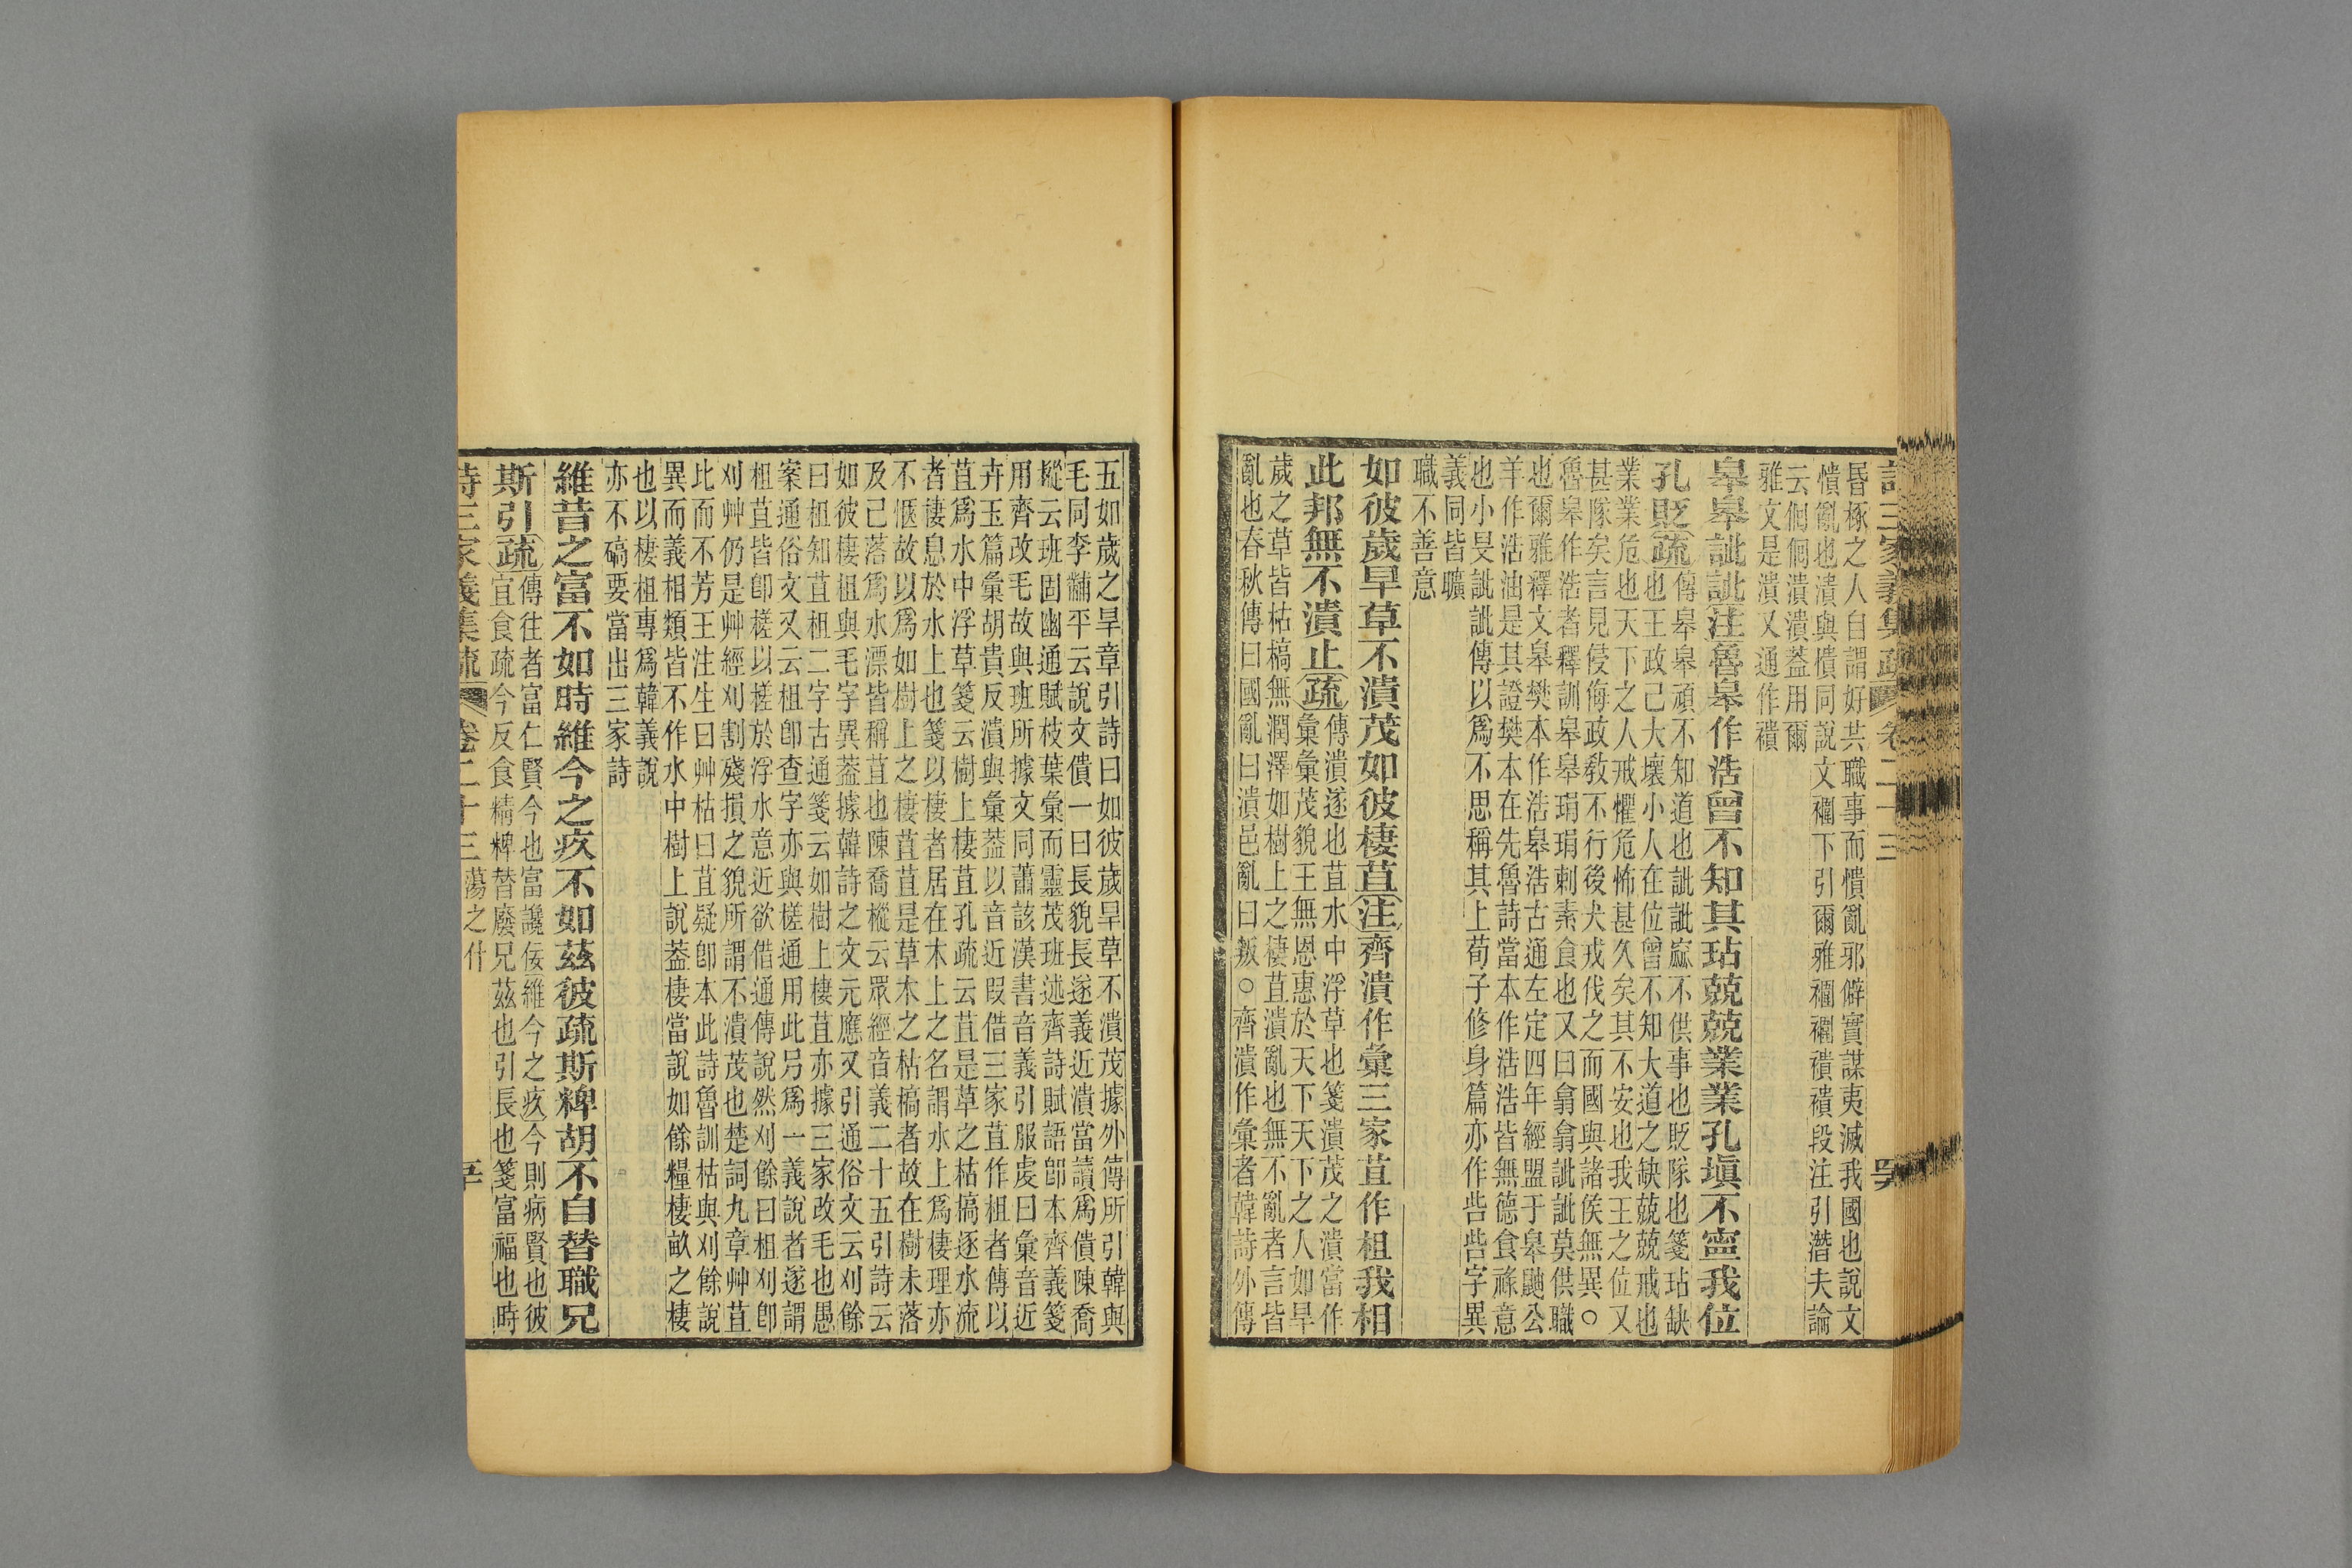 詩三家義集疏 卷二十三
昬椓之人自謂好共職事而憒亂邪僻實謀夷滅我國也說文
憒亂也潰與憒同說文襽下引爾雅襽襽襀襀段注引潛夫論
云佪佪潰潰葢用爾
雅文是潰又通作襀
皋皋訿訿注魯皋作浩曾不知其玷兢兢業業孔塡不寍我位
孔貶疏傳皋皋頑不知道也訿訿窳不供事也貶隊也箋玷缺
也王政己大壞小人在位曾不知大道之缺兢兢戒也
業業危也天下之人戒懼危怖甚久矣其不安也我王之位又
甚隊矣言見侵侮政敎不行後犬戎伐之而國與諸侯無異○
魯皋作浩者釋訓皋皋琄琄刺素食也又曰翕翕訿訿莫供職
也爾雅釋文皋樊本作浩皋浩古通左定四年經盟于皋鼬公
羊作浩油是其證樊本在先魯詩當本作浩浩皆無德食祿意
也小旻訿訿傳以爲不思稱其上荀子修身篇亦作呰呰字異
義同皆曠
職不善意
如彼歲旱草不潰茂如彼棲苴注齊潰作彙三家苴作柤我相
此邦無不潰止疏傳潰遂也苴水中浮草也箋潰茂之潰當作
彙彙茂貌王無恩惠於天下天下之人如旱
歲之草皆枯槁無潤澤如樹上之棲苴潰亂也無不亂者言皆
亂也春秋傳曰國亂曰潰邑亂曰叛○齊潰作彙者韓詩外傳
五如歲之旱章引詩曰如彼歲旱草不潰茂據外傳所引韓與
毛同李黼平云說文僓一曰長貌長遂義近潰當讀爲僓陳喬
樅云班固幽通賦枝葉彙而靈茂班述齊詩賦語卽本齊義箋
用齊改毛故與班所據文同蕭該漢書音義引服虔曰彙音近
卉玉篇彙胡貴反潰與彙葢以音近叚借三家苴作柤者傳以
苴爲水中浮草箋云樹上棲苴孔疏云苴是草之枯槁逐水流
者棲息於水上也箋以棲者居在木上之名謂水上爲棲理亦
不愜故以爲如樹上之棲苴苴是草木之枯槁者故在樹未落
及己落爲水漂皆稱苴也陳喬樅云眾經音義二十五引詩云
如彼棲柤與毛字異葢據韓詩之文元應又引通俗文云刈餘
曰柤知苴柤二字古通箋云如樹上棲苴亦據三家改毛也愚
案通俗文又云柤卽查字亦與槎通用此另爲一義說者遂謂
柤苴皆卽槎以槎於浮水意近欲借通傳說然刈餘曰柤刈卽
刈艸仍是艸經刈割殘損之貌所謂不潰茂也楚詞九章艸苴
比而不芳王注生曰艸枯曰苴疑卽本此詩魯訓枯與刈餘說
異而義相類皆不作水中樹上說葢棲當說如餘糧棲畝之棲
也以棲柤專爲韓義說
亦不碻要當出三家詩
維昔之富不如時維今之疚不如茲彼疏斯粺胡不自替職兄
斯引疏傳往者富仁賢今也富讒佞維今之疚今則病賢也彼
宜食疏今反食精粺替廢兄茲也引長也箋富福也時
詩三家義集疏 卷二十三 蕩之什